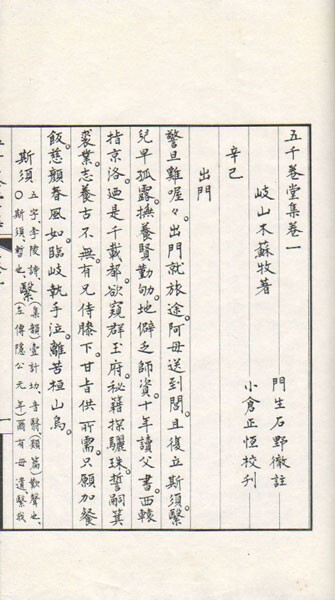 五千卷堂集卷一
岐山木蘇牧著
門生石野徹註
小倉正恆校刊
辛己
出門
警旦雞喔々。出門就旅途。阿母送到閭。且復立斯須。繄
兒早孤露。撫養賢勤劬。地僻乏師資。十年讀父書。西轅
指京洛。廼是千載都。欲窺群玉府。秘籍探驪珠。誓嗣箕
裘業。志養古不無。有兄侍膝下。甘旨供所需。只願加餐
飯。慈顏春風如。臨岐執手泣。離苦桓山烏。
斯須 五字、李陵詩、○斯須暫也、繄 (集韻)壹計切、音翳、(類篇)歎聲也、左傳隱公元年爾有母遺繄我